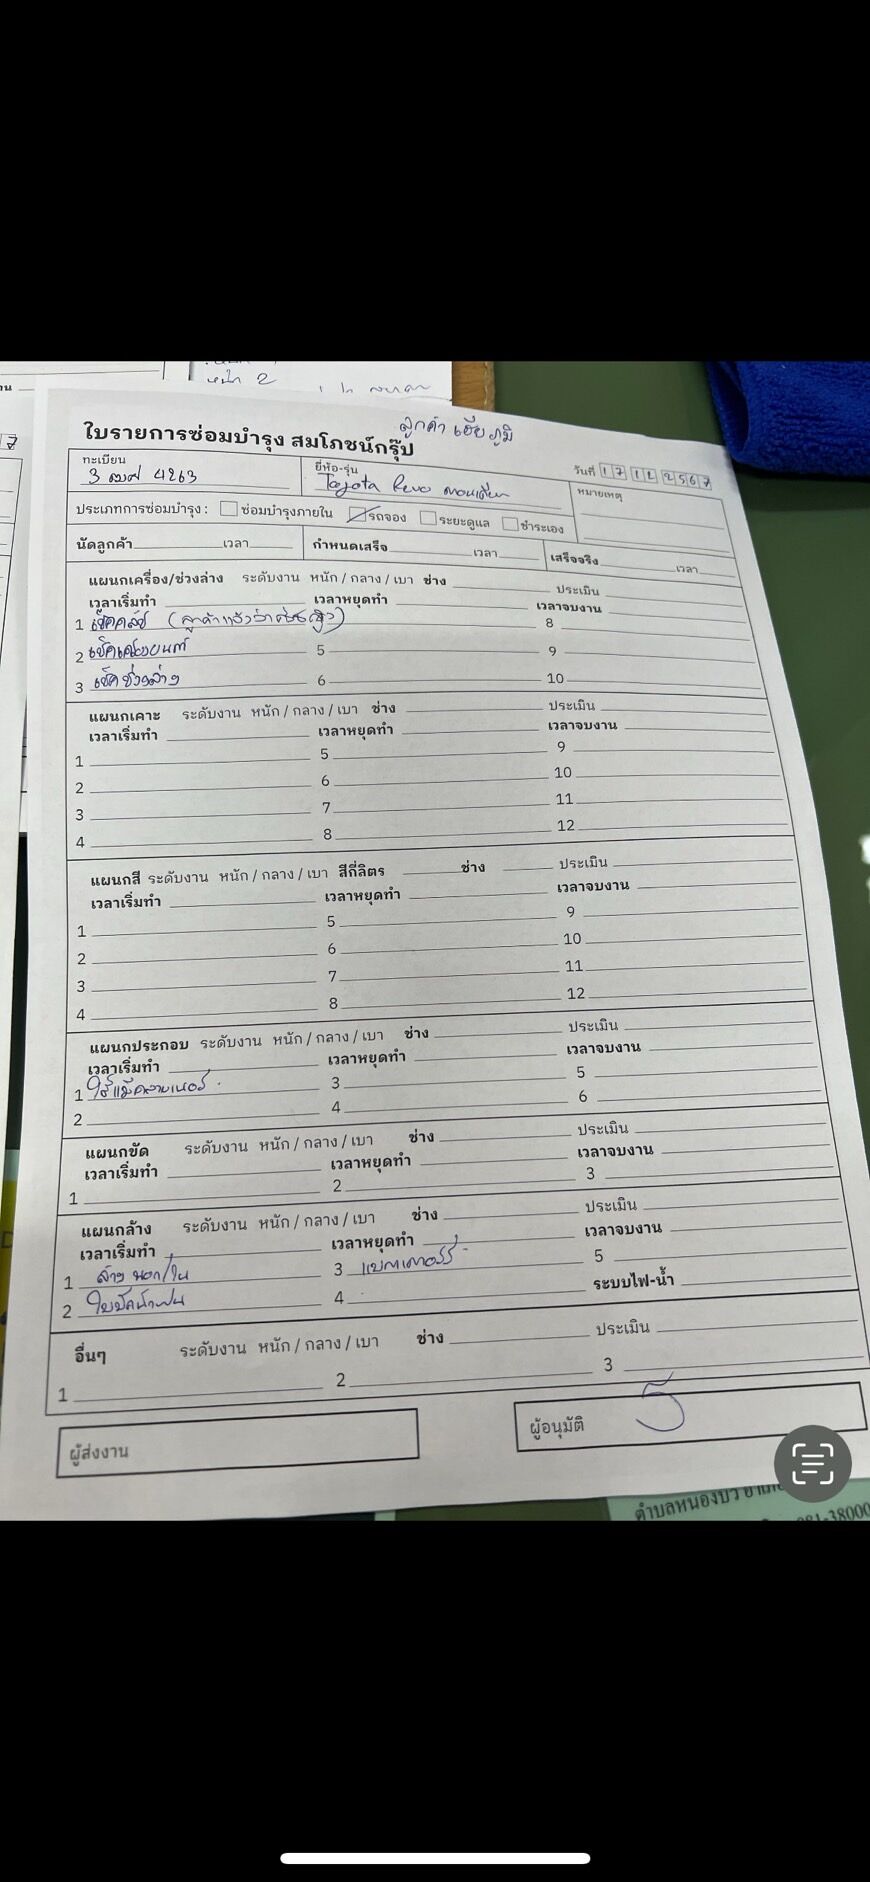 หน้า 2
ลูกค้า เฮียภูมิ
ใบรายการซ่อมบำรุง สมโภชน์กรุ๊ป
ทะเบียน
3 ฒฬ 4263
ยี่ห้อ-รุ่น
Toyota Revo ตอนเดียว
วันที่ 1 7 1 2 2 5 6 7
หมายเหตุ
ประเภทการซ่อมบำรุง : ซ่อมบำรุงภายใน รถจอง ระยะดูแล ชำระเอง
นัดลูกค้า เวลา กำหนดเสร็จ เวลา เสร็จจริง เวลา
แผนกเครื่อง/ช่วงล่าง ระดับงาน หนัก / กลาง / เบา ช่าง ประเมิน
เวลาเริ่มทำ เวลาหยุดทำ เวลาจบงาน
1 เช็คคลัช (ลูกค้าแจ้งว่า 8
2 เช็คเครื่องยนต์ 5 9
3 เช็คช่วงล่าง 6 10
แผนกเคาะ ระดับงาน หนัก / กลาง / เบา ช่าง ประเมิน
เวลาเริ่มทำ เวลาหยุดทำ เวลาจบงาน
1 5 9
2 6 10
3 7 11
4 8 12
แผนกสี ระดับงาน หนัก / กลาง / เบา สีกี่ลิตร ช่าง ประเมิน
เวลาเริ่มทำ เวลาหยุดทำ เวลาจบงาน
1 5 9
2 6 10
3 7 11
4 8 12
แผนกประกอบ ระดับงาน หนัก / กลาง / เบา ช่าง ประเมิน
เวลาเริ่มทำ เวลาหยุดทำ เวลาจบงาน
1 ใส่แม็คลายเนอร์ 3 5
2 4 6
แผนกขัด ระดับงาน หนัก / กลาง / เบา ช่าง ประเมิน
เวลาเริ่มทำ เวลาหยุดทำ เวลาจบงาน
1 2 3
แผนกล้าง ระดับงาน หนัก / กลาง / เบา ช่าง ประเมิน
เวลาเริ่มทำ เวลาหยุดทำ เวลาจบงาน
1 ล้าง นอก/ใน 3 แบตเตอรี่ 5
2 ใบปัดน้ำฝน 4 ระบบไฟ-น้ำ
อื่นๆ ระดับงาน หนัก / กลาง / เบา ช่าง ประเมิน
1 2 3
ผู้ส่งงาน
ผู้อนุมัติ
ตำบลหนองบัว